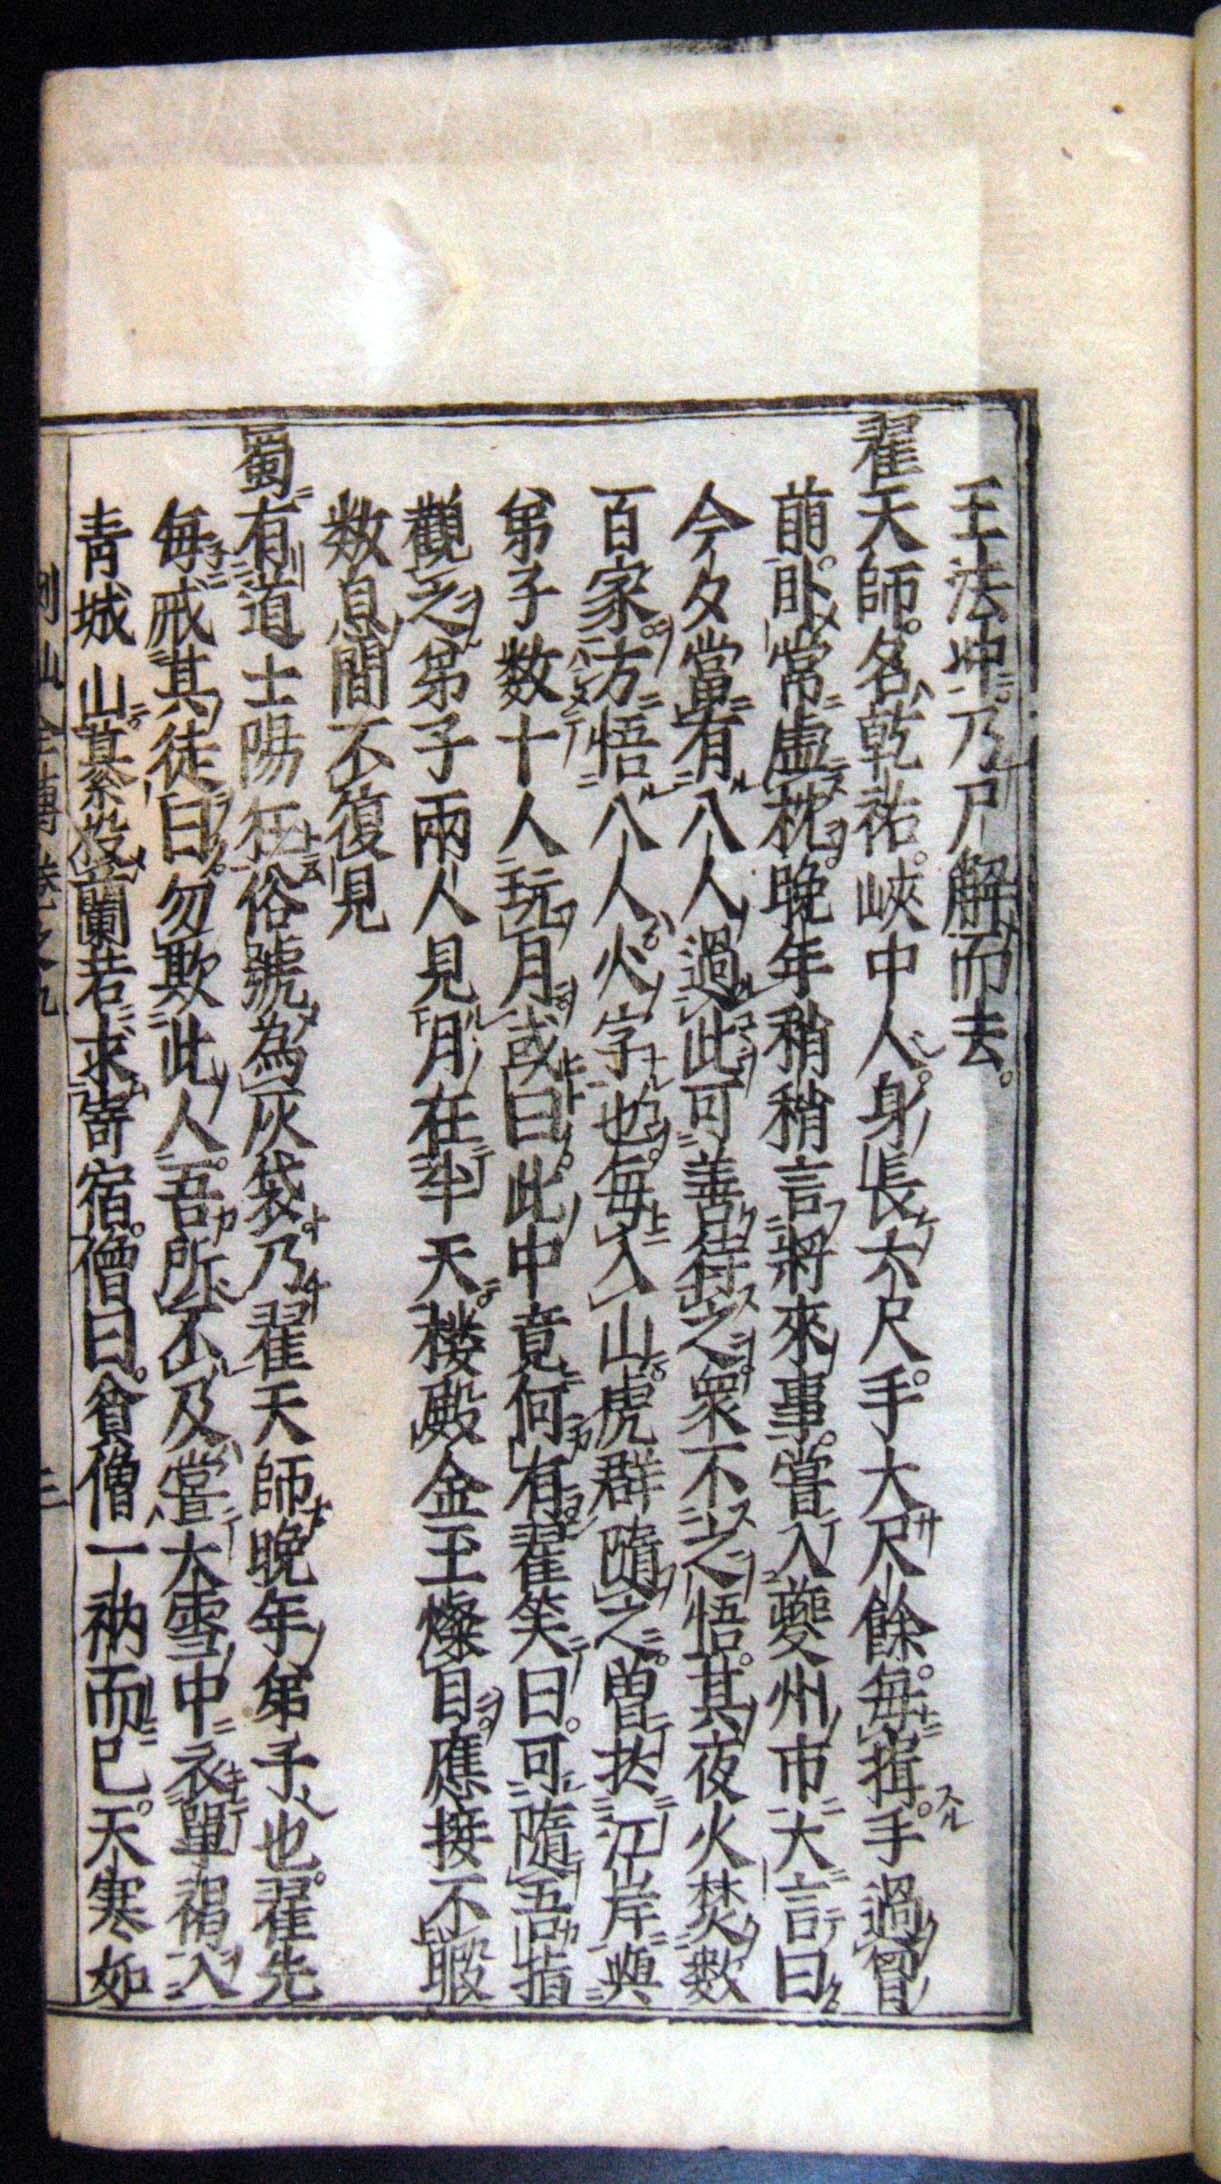 王法冲乃尸解而去。
翟天師。名乾祐。峽中人。身長六尺。手大尺餘。每揖。手過胷
前。卧常虛枕。晚年稍稍言將來事。嘗入夔州市大言曰
今夕當有八人過此可善待之衆不之悟。其夜火焚數
百家。方悟八人火字也。每入山虎群隨之。曽扵江岸與
弟子数十人玩月或曰。此中竟何有翟笑曰。可隨吾指
觀之弟子兩人見月在半天楼殿金玉燦目應接不暇
数息間不復見
蜀有道士陽狂俗號為灰袋乃翟天師晚年弟子也。翟先
每戒其徒曰勿欺此人。吾所不及嘗大雪中衣單褐入
青城山綦投蘭若求寄宿。僧曰。貧僧一衲而已。天寒如
列仙全傳卷之九 三